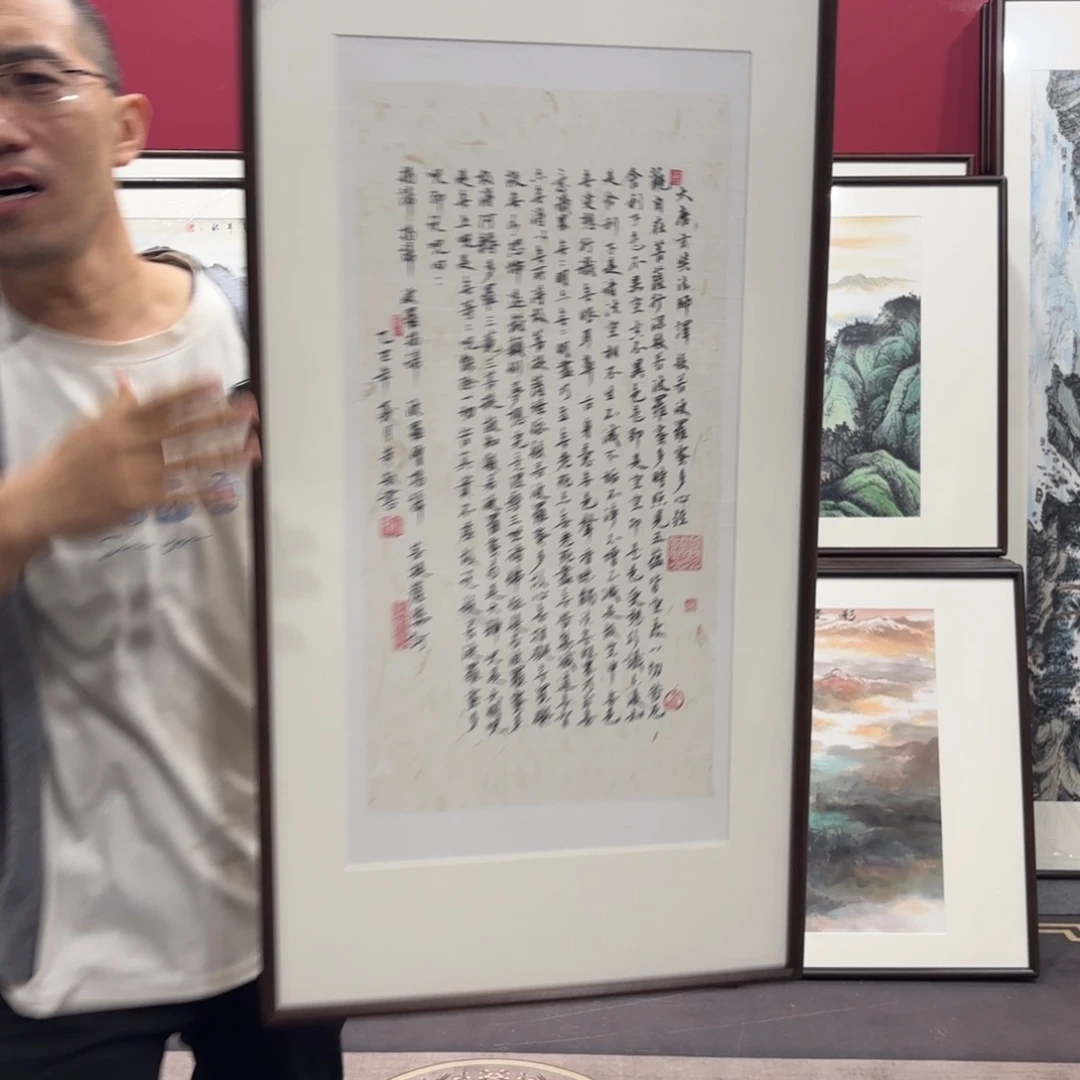 大唐玄奘法師譯 般若波羅蜜多心經
觀自在菩薩行深般若波羅蜜多時照見五蘊皆空度一切苦厄
舍利子色不異空空不異色色即是空空即是色受想行識亦復如
是舍利子是諸法空相不生不滅不垢不淨不增不減是故空中無色
無受想行識無眼耳鼻舌身意無色聲香味觸法無眼界乃至無
意識界無無明亦無無明盡乃至無老死亦無老死盡無苦集滅道無智
亦無得以無所得故菩提薩埵依般若波羅蜜多故心無罣礙無罣礙
故無有恐怖遠離顛倒夢想究竟涅槃三世諸佛依般若波羅蜜多
故得阿耨多羅三藐三菩提故知般若波羅蜜多是大神咒是大明咒
是無上咒是無等等咒能除一切苦真實不虛故說般若波羅蜜多
咒即說咒曰
揭諦揭諦 波羅揭諦 波羅僧揭諦 菩提薩婆訶
乙巳年 書